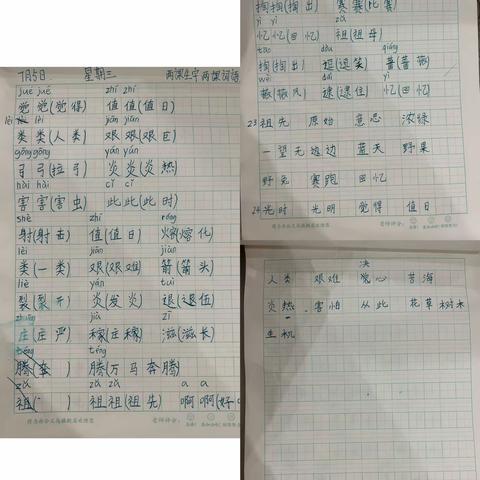 7月5日 星期三 两课生字两课词语
jué jué zhí zhí
觉 觉(觉得) 值值(值日)
lèi jiān jiān
类类(人类) 艰艰(艰巨)
gōng gōng yán yán
弓弓(拉弓) 炎炎(炎热)
hài hài cǐ cǐ
害害(害虫) 此此(此时)
shè zhí róng
射(射击) 值(值日) 熔(熔化)
lèi jiān jiàn
类(一类) 艰(艰难) 箭(箭头)
liè yán tuì
裂(裂开) 炎(发炎) 退(退伍)
zhuāng jià zī
庄(庄严) 稼(庄稼) 滋(滋长)
téng téng
腾(奔 ) 腾(万马奔腾)
zǔ zǔ zǔ a a
祖( ) 祖祖(祖先) 啊啊(好
掏掏(掏出) 赛赛(比赛)
yì yì zǔ
忆忆(回忆) 祖(祖母)
tāo dòu qiáng
掏(掏出) 逗(逗笑) 蔷(蔷薇)
wēi dǎi yì
薇(薇 逮(逮住) 忆(回忆)
23 祖先 原始 意思 浓绿
一望无边边 蓝天 野果
野兔 赛跑 回忆
24 光时 光明 觉得 值日
决
人类 艰难 觉心 苦海
炎热 、害怕 从此 花草树木
生机